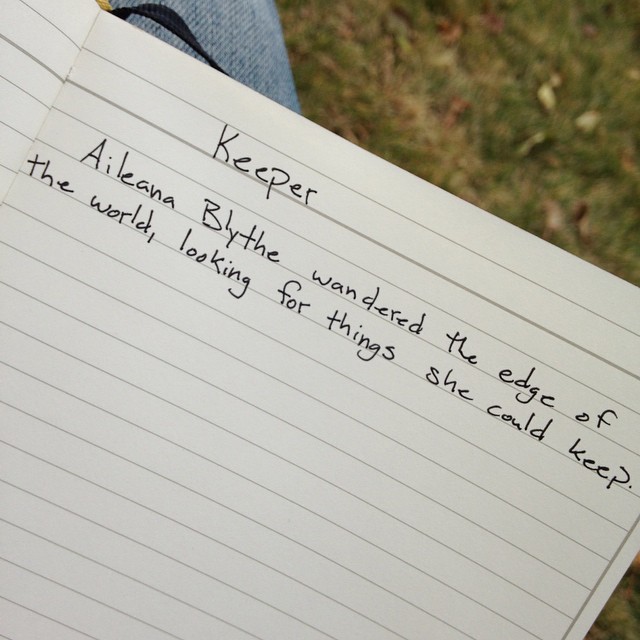 Keeper
Aileana Blythe wandered the edge of
the world, looking for things she could keep.